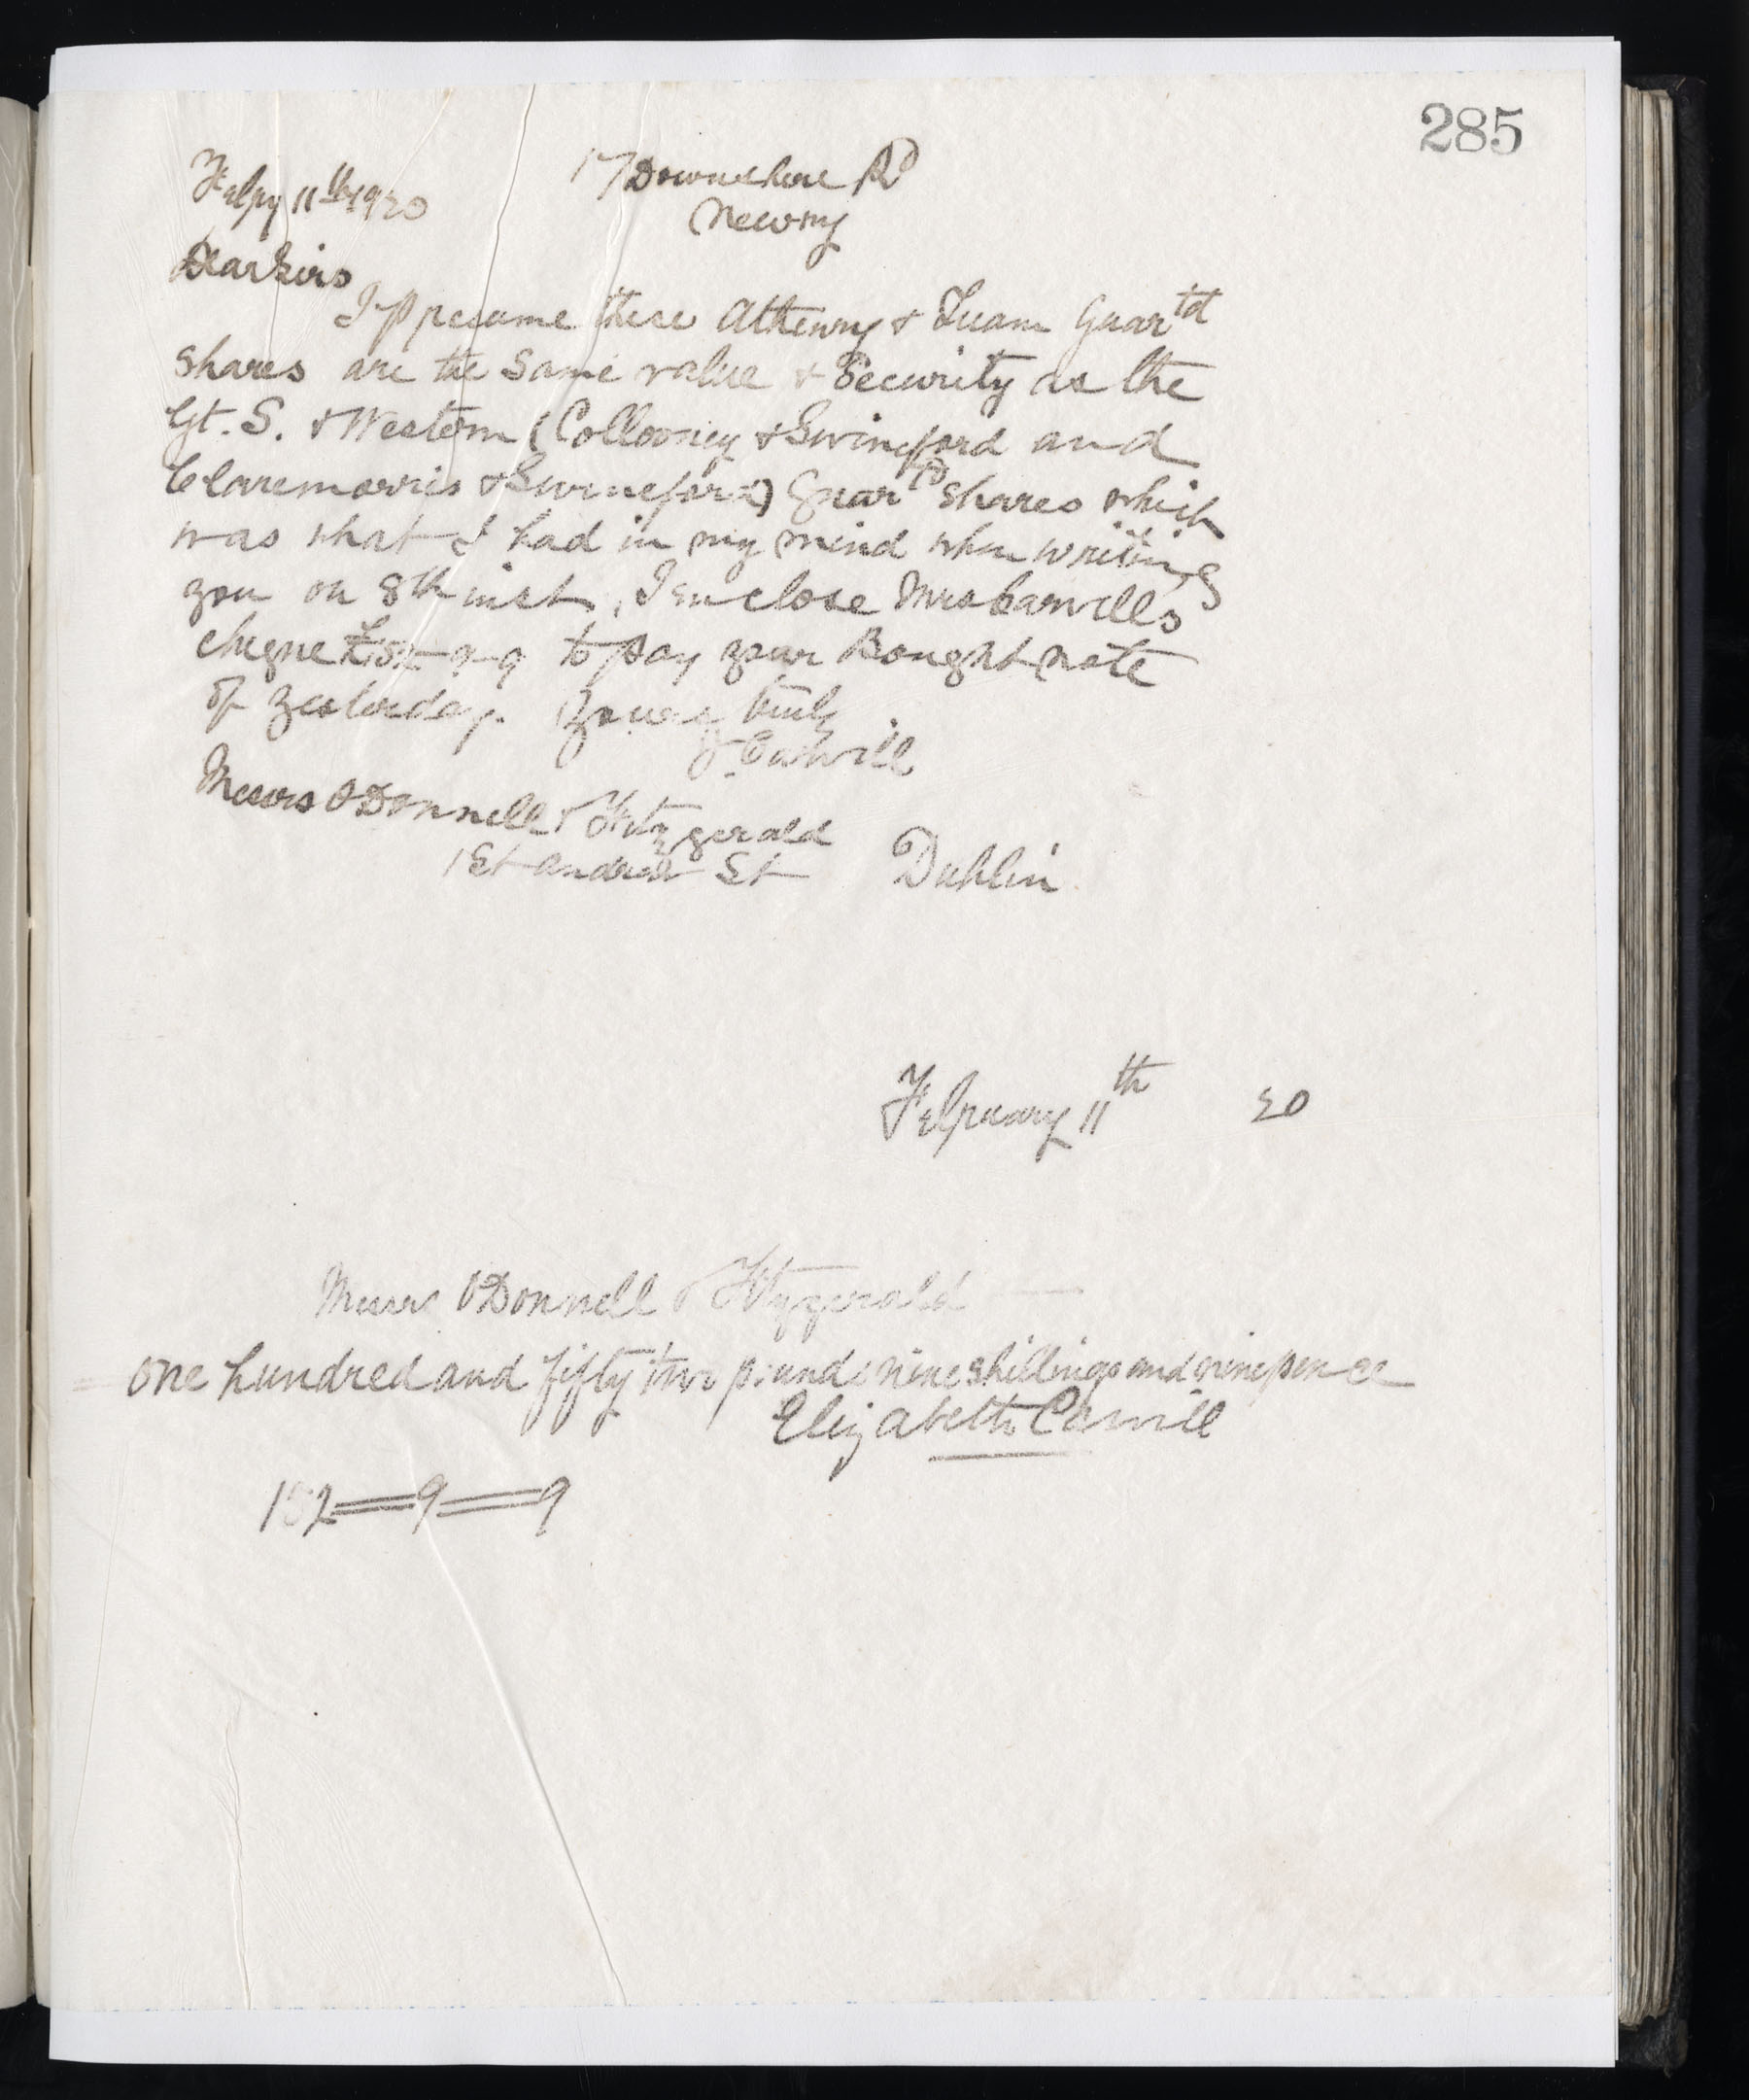 285
17 Downshire Rd
Newry
Feby 11th 1920
Dear Sirs
I presume these Athenry & Tuam Guartd
shares are the same value & security as the
Gt. S. & Western (Collooney & Swineford and
Claremorris & Swineford) Guartd shares which
was what I had in my mind when writing
you on 8th inst. I enclose Mrs Carvills
cheque £152-9-9 to pay your Bought note
of yesterday. Yours truly
Carvill
Messrs O'Donnell & Fitzgerald
1 St Andrew St Dublin
February 11th 20
Messrs O'Donnell & Fitzgerald
one hundred and fifty two pounds nine shillings and nine pence
Elizabeth Carvill
152=9=9